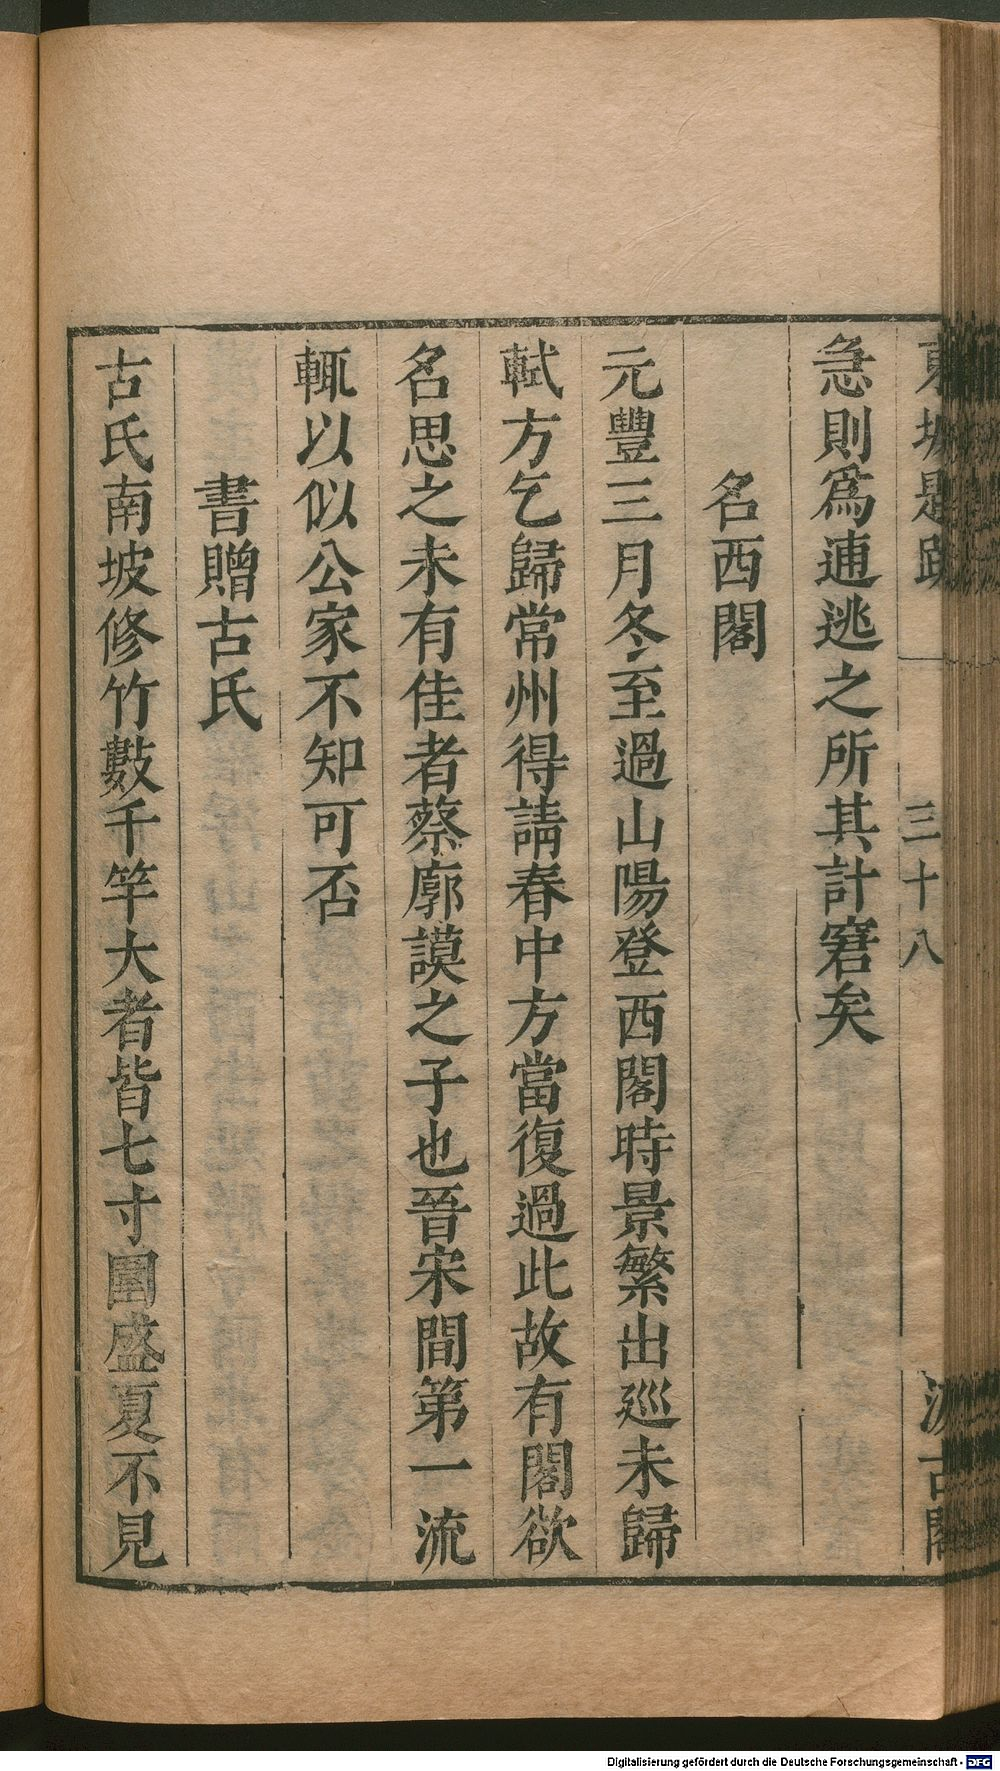 東坡題跋 三十八 汲古閣
急則爲逋逃之所其計窘矣
名西閣
元豐三月冬至過山陽登西閣時景繁出巡未歸
軾方乞歸常州得請春中方當復過此故有閣欲
名思之未有佳者蔡廓謨之子也晉宋間第一流
輒以似公家不知可否
書贈古氏
古氏南坡修竹數千竿大者皆七寸圍盛夏不見
Digitalisierung gefördert durch die Deutsche Forschungsgemeinschaft - DFG